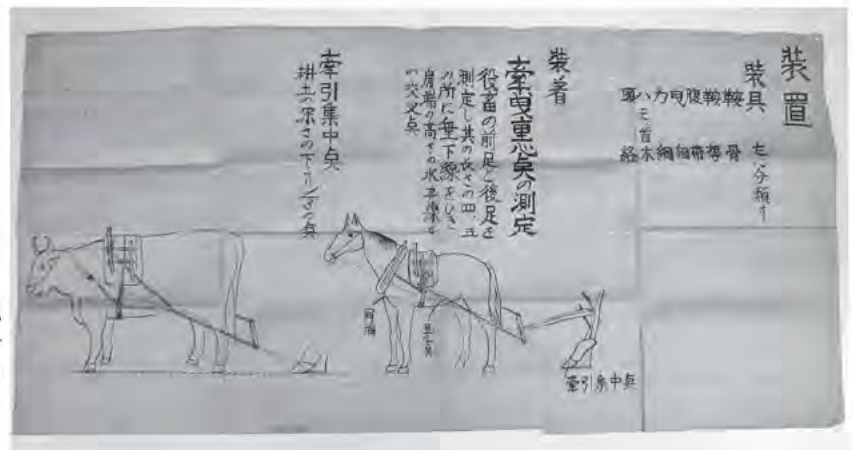 装置
装具 七ツ分類す
鞍骨
鞍褥
腹帯
ハモ首木
頭絡
装着
牽曳重心奌の測定
役畜の前足と後足を
測定し其の長さの四、五
の所に垂下線をひき
肩端の高さの水平線と
の交叉奌
牽引集中奌
耕土の深さの下より1/3の奌
肩端
重心奌
牽引集中奌